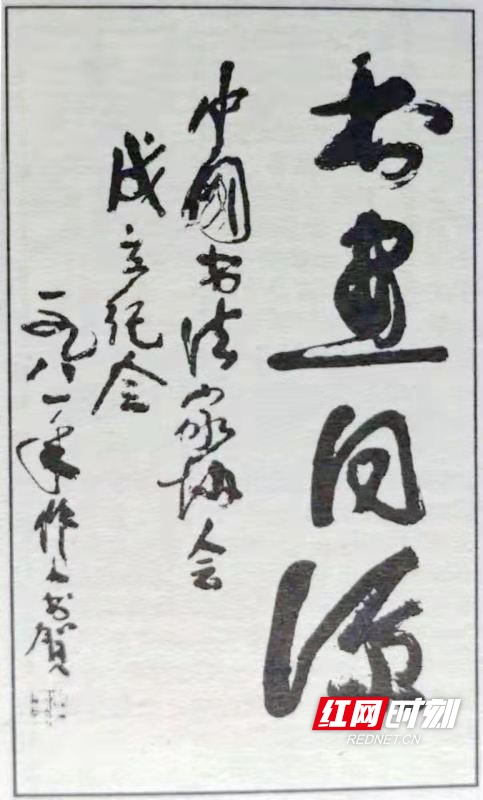 书画同源
中国书法家协会
成立纪念
一九八一年作人书贺
红网时刻
REDNET.CN